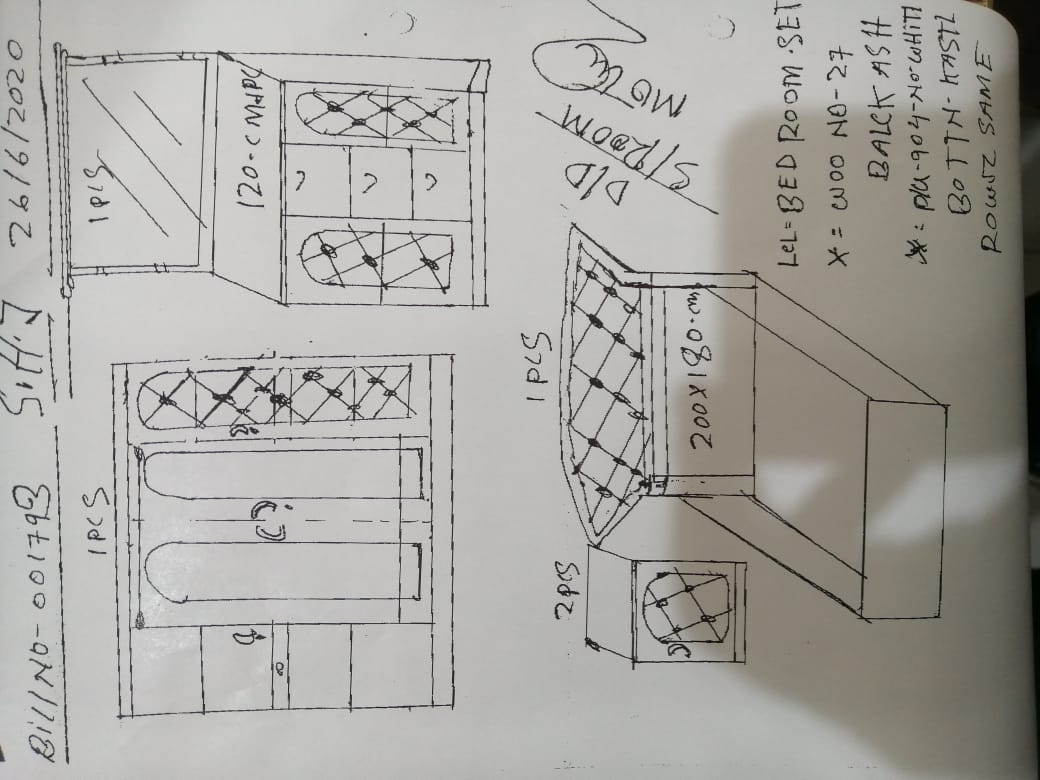 Bill NO-001793 S.H.J 26/6/2020
1PCS
1PCS
120-CM-1PC
2PCS
1PCS
200X180.cm
D/D
S/ROOM
LCL= BED ROOM.SET
X= WOO NO-27
BALCK ASH
X= P/U-904-NO-WHITI
BOTTN-
SAME